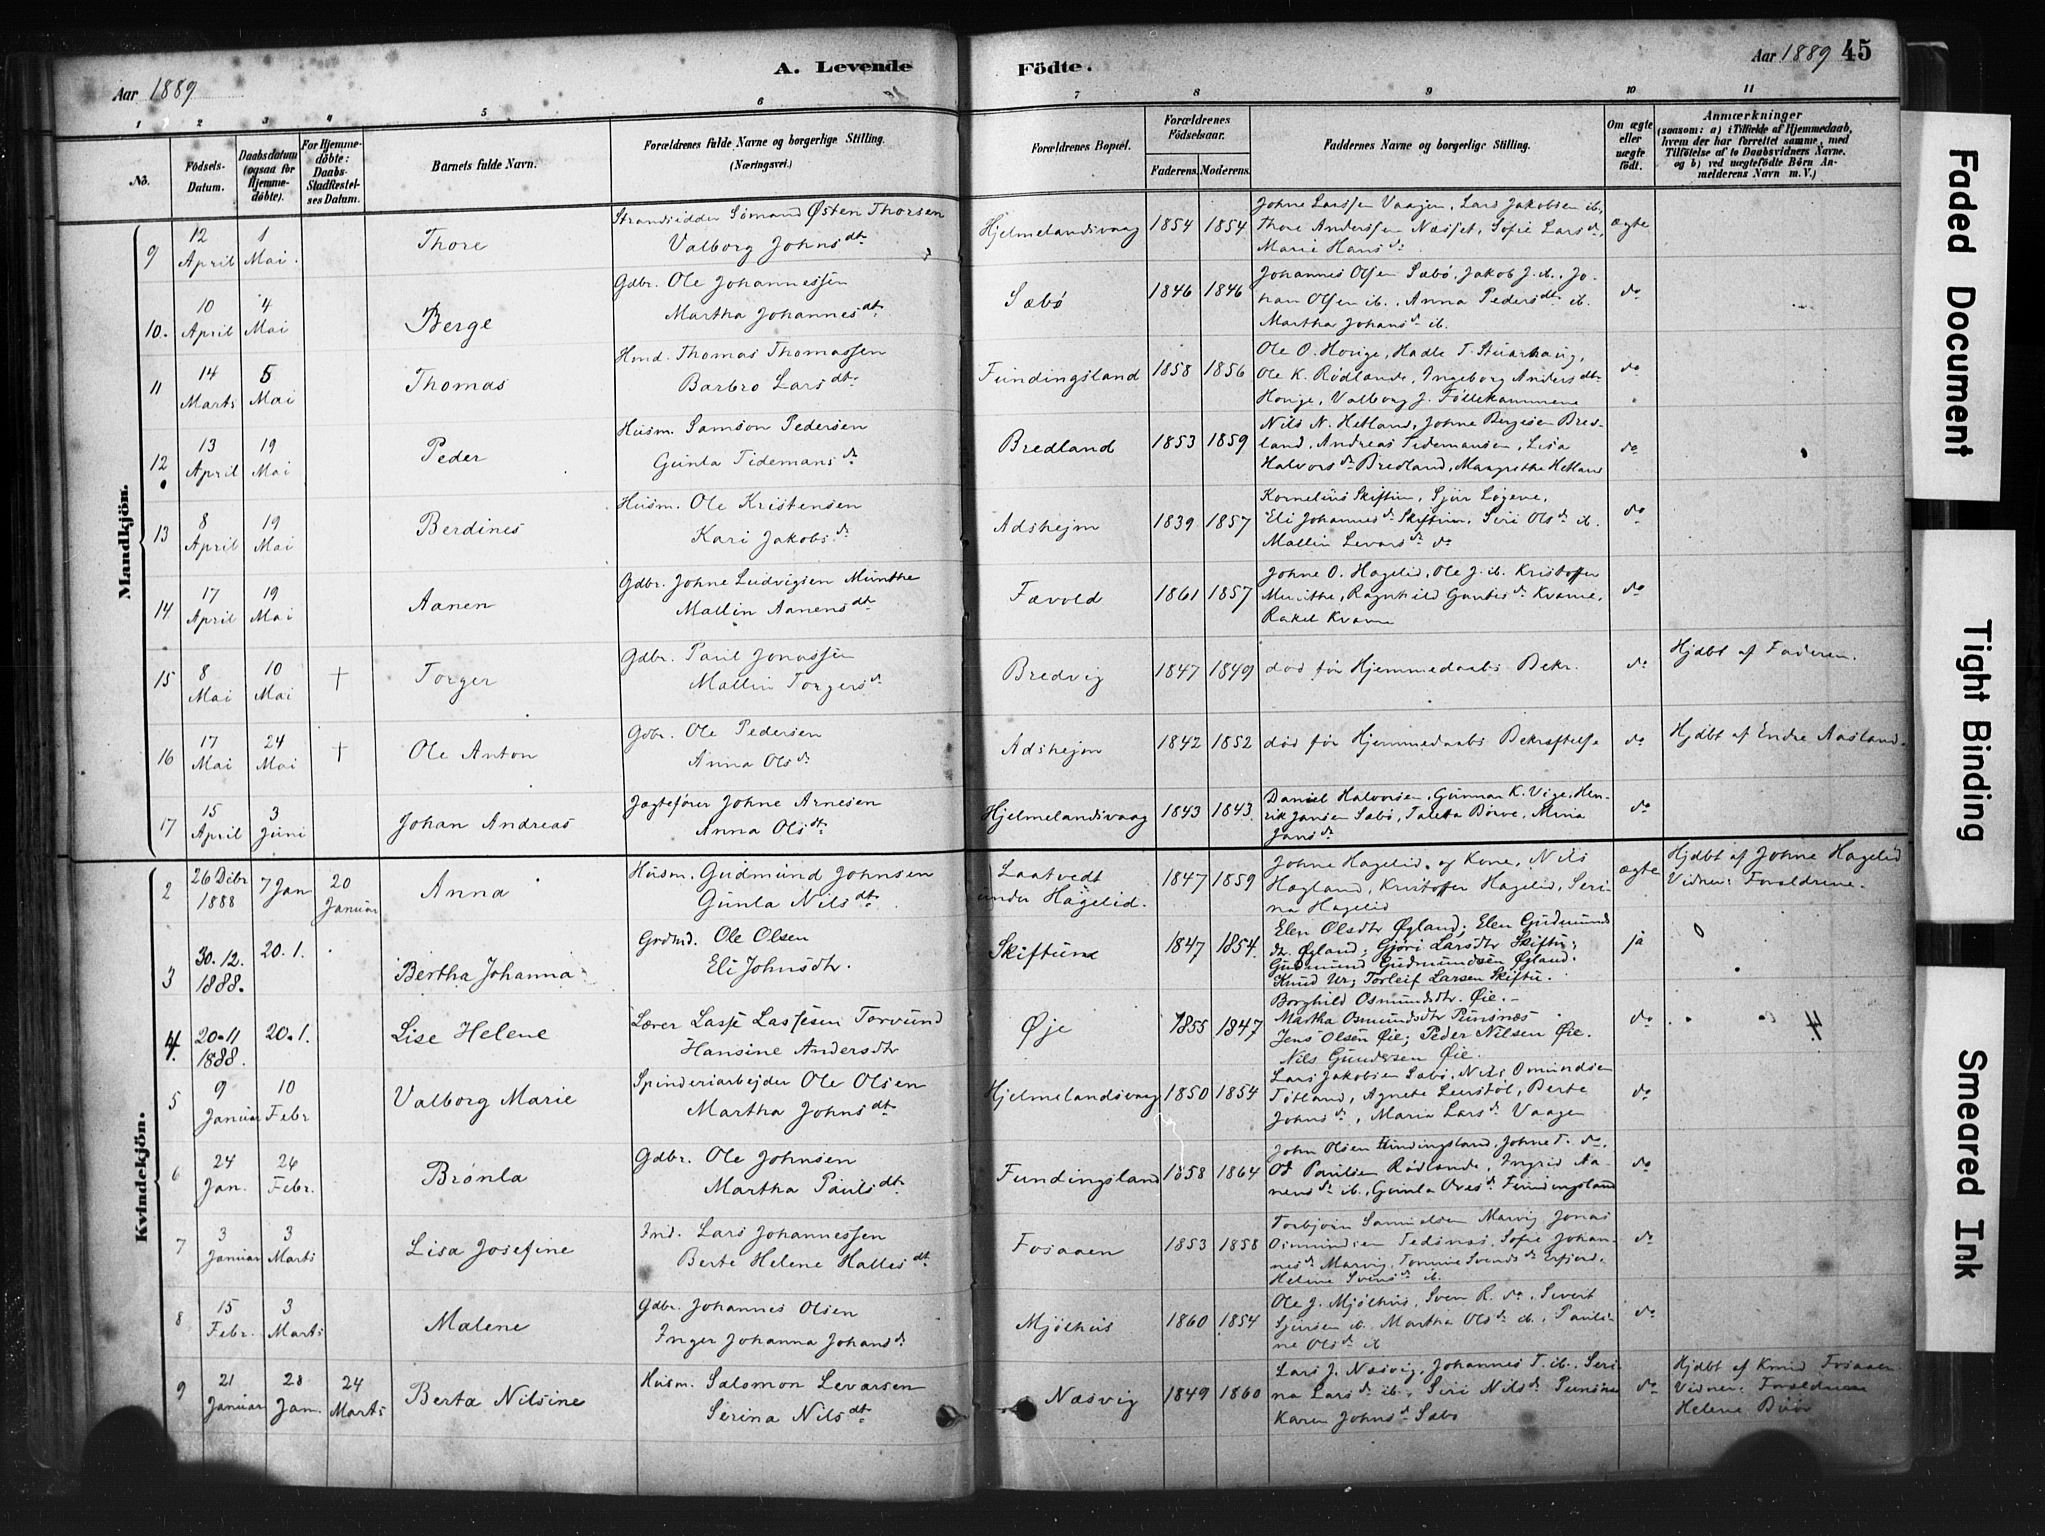 Aar 1889
A. Levende
Födte.
Aar 1889 45
1 2 3 4 5 6 7 8 9 10 11
No.
Födsels-Datum.
Daabsdatum (ogsaa for Hjemme-döbte).
For Hjemme-döbte: Daabs-Stadfestel-ses Datum.
Barnets fulde Navn.
Forældrenes fulde Navne og borgerlige Stilling. (Næringsvei.)
Forældrenes Bopæl.
Forældrenes Födselsaar.
Faderens. Moderens.
Faddernes Navne og borgerlige Stilling.
Om ægte eller uægte födt.
Anmærkninger
(saasom: a) i Tilfælde af Hjemmedaab, hvem der har forrettet samme, med Tilföielse af to Daabsvidners Navne. og b) ved uægtefödte Börn An-melderens Navn m. V.)
Mandkjön.
9 12 April 1 Mai. Thore
Strandsidder Sömand Østen Thorsen
Valborg Johnsdt.
Hjelmelandsvaag 1854 1854
Johne Larssen Vaagen, Lars Jakobsen ib,
Thore Anderssen Næsset, Sofie Larsd.,
Marie Hansd.
ægte
10. 10 April 4 Mai Berge
Gdbr. Ole Johannessen
Martha Johannesdt.
Sæbø 1846 1846
Johannes Olsen Sæbø, Jakob J. ib., Jo-
han Olsen ib., Anna Pedersdt. ib.
Martha Johansd. ib.
do
11 14 Marts 5 Mai Thomas
Hmd. Thomas Thomassen
Barbro Larsdt.
Fundingsland 1858 1856
Ole O. Houge, Hadle T. Stuarhaug,
Ole K. Rødlande, Ingeborg Andersdt.
Houge, Valborg J. Föllekammene
do
12 13 April 19 Mai Peder
Husm. Samson Pedersen
Gunla Tidemansd.
Bredland 1853 1859
Nils N. Hetland, Johne Bergesen Bred-
land, Andreas Tidemansen, Lisa
Halvorsd. Bredland, Margrethe Hetland
do
13 8 April 19 Mai Berdines
Husm. Ole Kristensen
Kari Jakobsd.
Adshejm 1839 1857
Kornelius Skiftun, Sjur Løgene,
Eli Johannesd. Skiftun, Siri Olsd. ib.
Mallin Levorsd. do
do
14. 17 April 19 Mai Aanen
Gdbr. Johne Ludvigsen Munthe
Mallin Aanensdt.
Fævold 1861 1857
Johne O. Hagelid, Ole J. ib. Kristoffer
Munthe, Ragnhild Gautesd. Kvame,
Rakel Kvame
do
15 8 Mai 10 Mai † Torger
Gdbr. Paul Jonassen
Mallin Torgersd.
Bredvig 1847 1849
død før Hjemmedaabs Bekr.
do
Hjdbt af Faderen.
16 17 Mai 24 Mai † Ole Anton
Gdbr. Ole Pedersen
Anna Olsd.
Adshejm 1842 1852
død før Hjemmedaabs Bekræftelse
do
Hjdbt af Endre Aasland.
17 15 April 3 Juni Johan Andreas
Jagtefører Johne Arnesen
Anna Olsdt.
Hjelmelandsvaag 1843 1843
Daniel Halvorsen, Gunnar K. Vige, Hen-
rik Jansen Sæbø, Taletta Börve, Mina
Jansd.
do
Kvindekjön.
2 26 Dcbr 1888 7 Jan 20 Januar Anna
Husm. Gudmund Johnsen
Gunla Nilsdt.
Laatvedt under Hagelid. 1847 1859
Johne Hagelid og Kone, Nils
Hægland, Kristoffer Hagelid, Seri-
na Hagelid
ægte
Hjdbt af Johne Hagelid
Vidner: Forældrene.
3 30.12. 1888. 20.1. Bertha Johanna
Grdmd. Ole Olsen
Eli Johnsdtr.
Skiftune 1847 1854.
Elen Olsdtr Øgland; Elen Gudmunds
dtr. Øgland; Gjøri Larsdtr Skiftu;
Gudmund Gudmundsen Øgland.
Knud Ur; Torleif Larsen Skiftu.
ja
4. 20.11 1888. 20.1. Lise Helene
Lærer Lasse Lassesen Torvund
Hansine Andersdtr
Øje 1855 1847
Borghild Osmundsdtr. Øie.
Martha Osmundsdtr Punsnæs
Jens Olsen Øie; Peder Nilsen Øie.
Nils Gundersen Øie.
do
4.
5 9 Januar 10 Febr Valborg Marie
Spinderiarbejder Ole Olsen
Martha Johnsdt.
Hjelmelandsvaag 1850 1854
Lars Jakobsen Sæbø, Nils Omundsen
Titland, Agnete Leirstøl, Berte
Johnsd., Maria Larsd. Vaagen
do
6 24 Jan. 26 Febr. Brønla
Gdbr. Ole Johnsen
Martha Paulsdt.
Fundingsland 1858 1864
John Olsen Fundingsland, Johne T. do.
Od Paulsen Rødlande, Ingrid Aa-
nensd. ib., Gunla Ovesd. Fundingsland
do
7 3 Januar 3 Marts Lisa Josefine
Ind. Lars Johannessen
Berte Helene Hallesdt.
Fosaaen 1853 1858
Torbjörn Samuelsen Marvig Jonas
Osmundsen Tedsnæs, Sofie Johan-
nesd. Marvig, Tomine Svendsd. Erfjord.
Helene Svensd. ib.
do
8 15 Febr. 3 Marts Malene
Gdbr. Johannes Olsen
Inger Johanna Johansd.
Mjölhus 1860 1854
Ole J. Mjölhus, Sven R. do., Sivert
Sjursen ib. Martha Olsd. ib., Pauli-
ne Olsd. ib
do
9 21 Januar 28 Jan. 24 Marts Berta Nilsine
Husm. Salomon Levarsen
Serina Nilsdt.
Næsvig 1849 1860
Lars J. Næsvig, Johannes T. ib., Seri-
na Larsd. ib., Siri Nilsd. Punsnæs
Karen Johnsd. Sæbø
do
Hjdbt af Knud Fosaaen
Vidner: Forældrene
Helene
Faded Document
Tight Binding
Smeared Ink